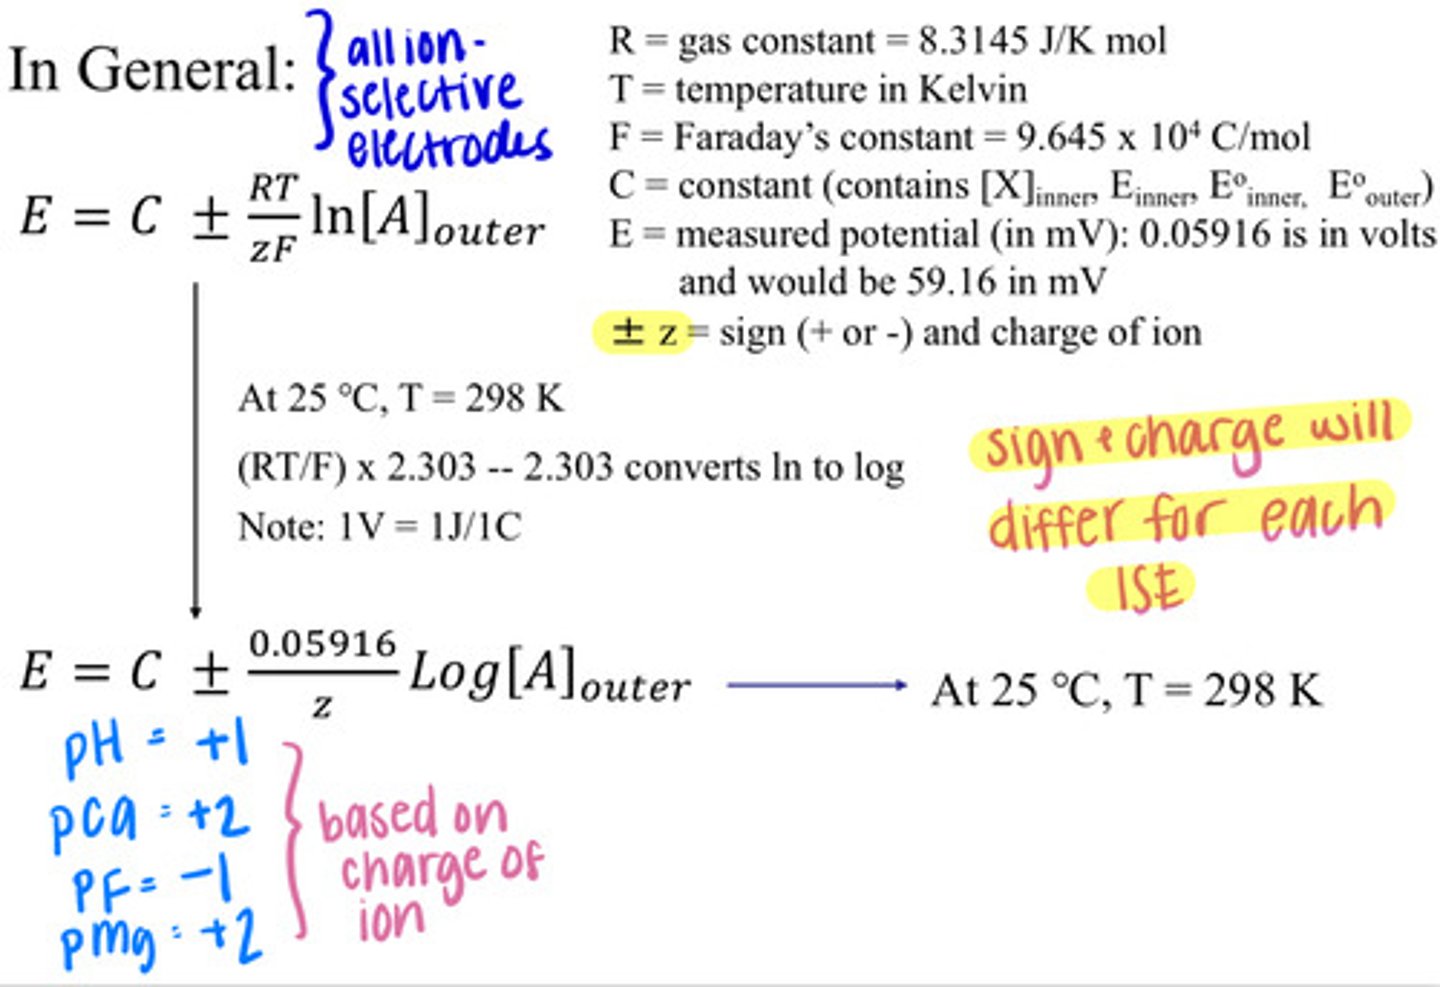 In General:
all ion-
selective
electrodes
E = C ± RT/zF ln[A]outer
R = gas constant = 8.3145 J/K mol
T = temperature in Kelvin
F = Faraday's constant = 9.645 x 10⁴ C/mol
C = constant (contains [X]inner, Einner, Eºinner, Eºouter)
E = measured potential (in mV): 0.05916 is in volts
and would be 59.16 in mV
± z = sign (+ or -) and charge of ion
At 25 °C, T = 298 K
(RT/F) x 2.303 -- 2.303 converts ln to log
Note: 1V = 1J/1C
sign + charge will
differ for each
ISE
E = C ± 0.05916/z Log[A]outer
At 25 °C, T = 298 K
pH = +1
pca = +2
PF = -1
pmg = +2
based on
charge of
ion